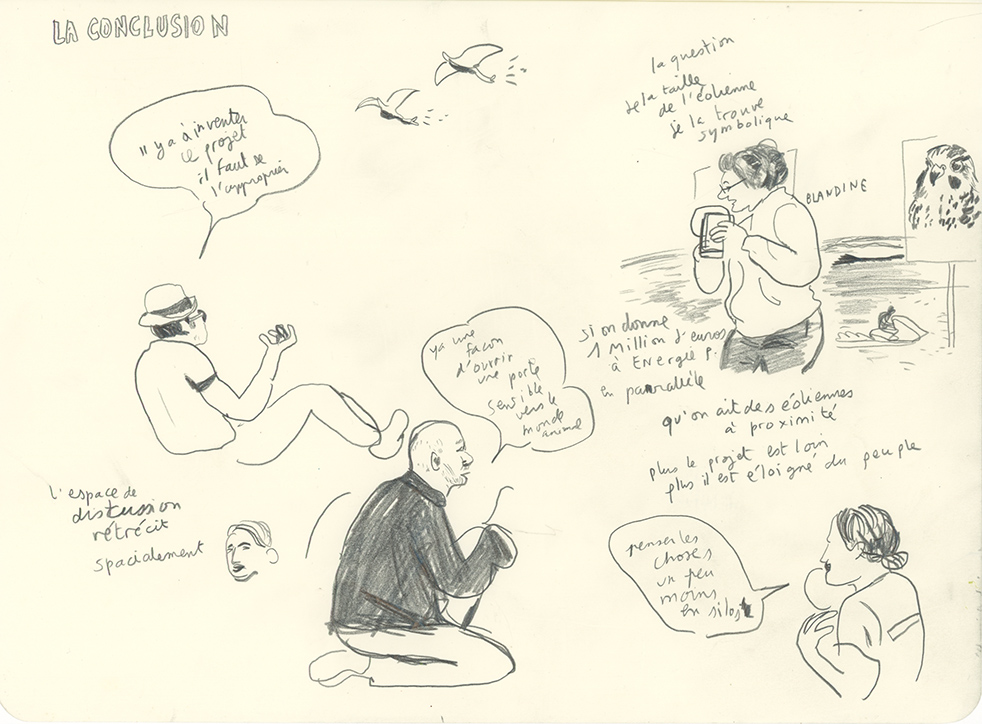 LA CONCLUSION
"ya à inventer
ce projet
il faut se
l'approprier
la question
de la taille
de l'éolienne
je la trouve
symbolique
BLANDINE
ya une
façon
d'ouvrir
une porte
sensible
vers le
monde
animal
si on donne
1 Million d'euros
à ENERGIE P.
en parrallèle
qu'on ait des éoliennes
à proximité
plus le projet est loin
plus il est éloigné du peuple
l'espace de
discussion
rétrécit
spacialement
penser les
choses
un peu
moins
en silos